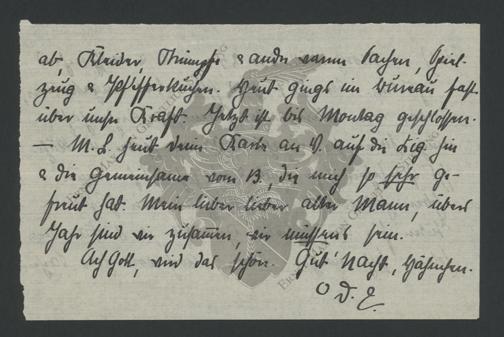 ab, Kleider, Strümpfe & andre warme Sachen, Spiel-
zeug & Pfefferkuchen. Heut gings im Bureau fast
über unsre Kraft. Jetzt ist bis Montag geschlossen.
— M. L. heut Deine Karte an V. auf die hin
& die Gemeinsame vom B, die mich so sehr ge-
freut hat. Mein lieber lieber alter Mann, übers
Jahr sind wir zusammen, wir müssens sein.
Ach Gott, wird das schön. Gut' Nacht, Hähnchen.
O D. E.